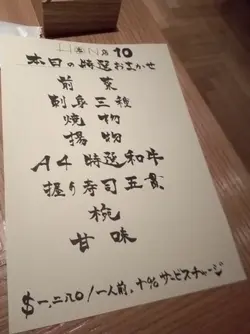 本日の特選おまかせ
前菜
刺身三種
焼物
揚物
A4特選和牛
握り寿司五貫
椀
甘味
$一,二八〇/一人前,十%サービスチャージ